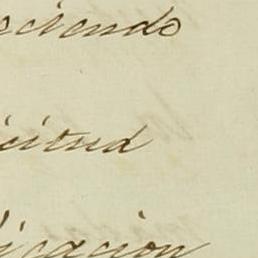 eciendo
icitud
icacion